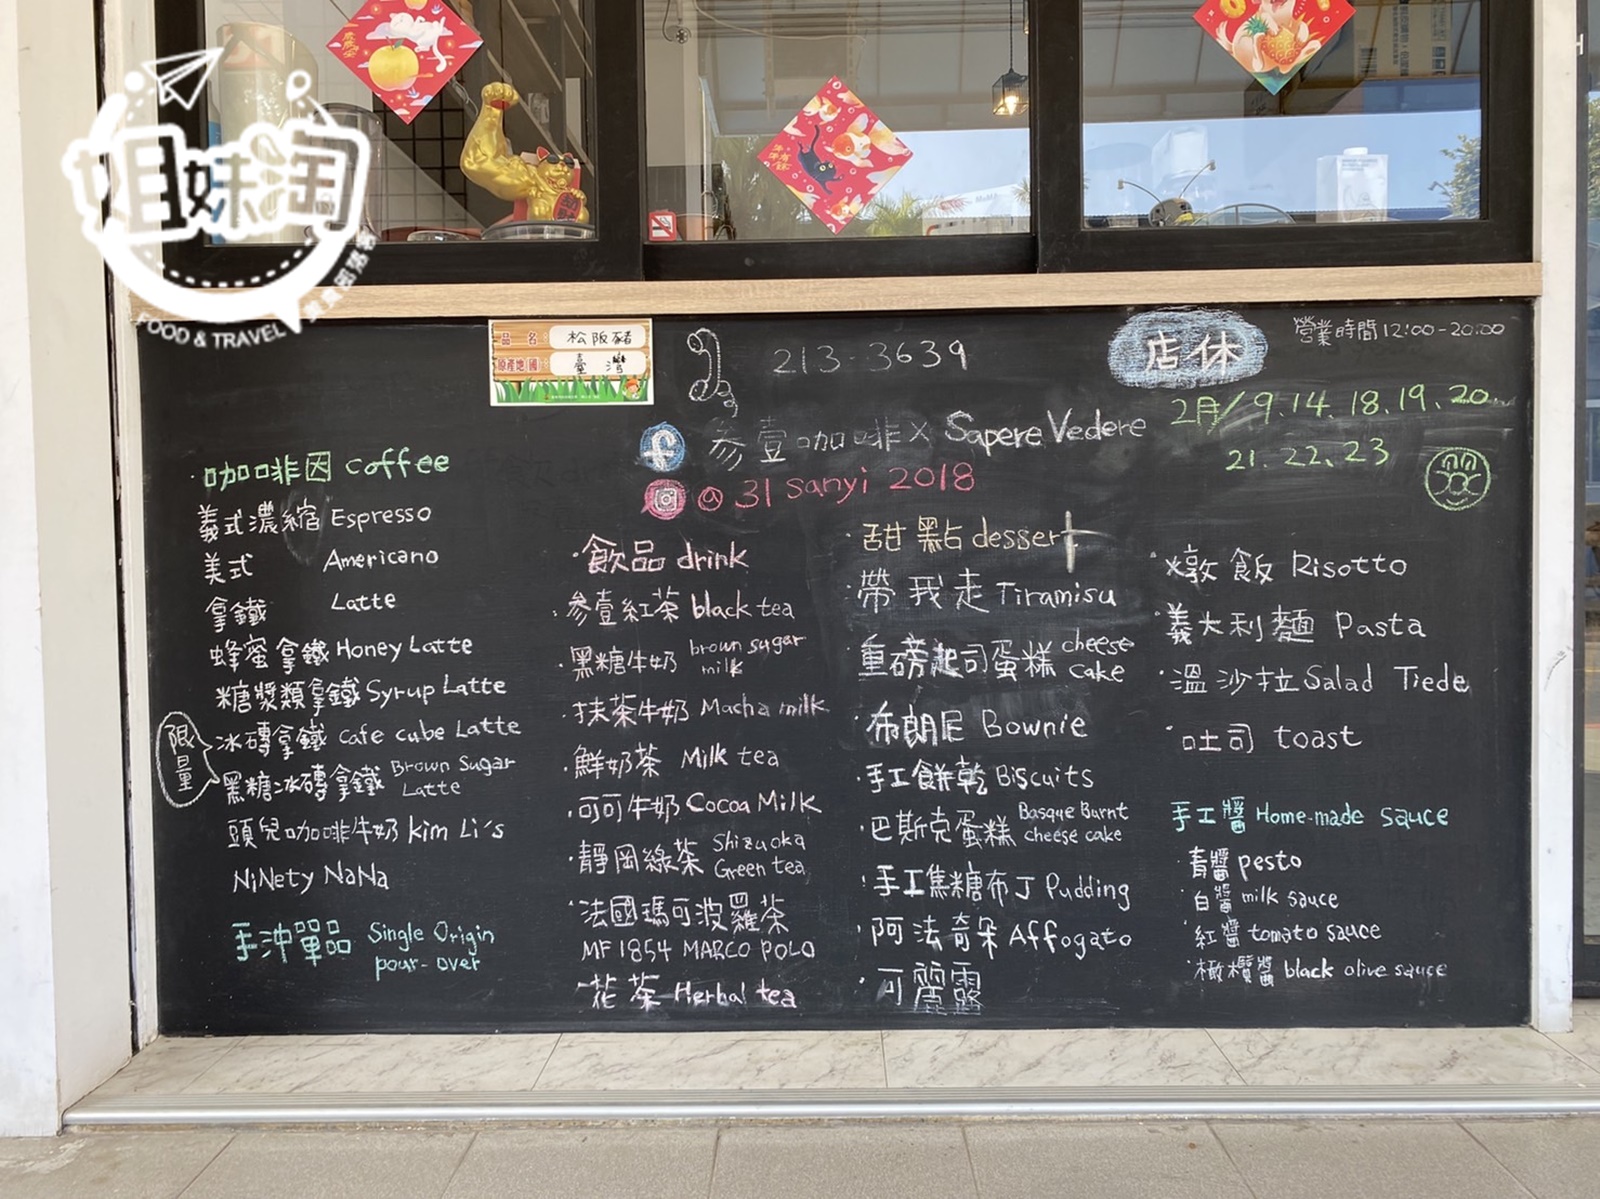 姐妹淘
FOOD & TRAVEL
品 名: 松阪豬
原產地國: 臺灣
213-3639
店休
營業時間12:00-20:00
2月/9.14.18.19.20.
21.22.23
參壹咖啡 x Sapere Vedere
@ 31 sanyi 2018
·咖啡因 coffee
義式濃縮 Espresso
美式 Americano
拿鐵 Latte
蜂蜜拿鐵 Honey Latte
糖漿類拿鐵 Syrup Latte
限量
冰磚拿鐵 cafe cube Latte
黑糖冰磚拿鐵 Brown Sugar Latte
頭兒咖啡牛奶 Kim Li's
NiNety NaNa
手沖單品 Single Origin pour-over
·飲品 drink
·參壹紅茶 black tea
·黑糖牛奶 brown sugar milk
·抹茶牛奶 Macha milk
·鮮奶茶 Milk tea
·可可牛奶 Cocoa Milk
·靜岡綠茶 Shizuoka Green tea
·法國瑪可波羅茶
MF 1854 MARCO POLO
·花茶 Herbal tea
甜點 dessert
·帶我走 Tiramisu
·重磅起司蛋糕 cheese cake
·布朗尼 Bownie
·手工餅乾 Biscuits
·巴斯克蛋糕 Basque Burnt cheese cake
·手工焦糖布丁 Pudding
·阿法奇朵 Affogato
·可麗露
·燉飯 Risotto
·義大利麵 Pasta
·溫沙拉 Salad Tiede
·吐司 toast
手工醬 Home-made sauce
·青醬 pesto
·白醬 milk sauce
·紅醬 tomato sauce
·橄欖醬 black olive sauce